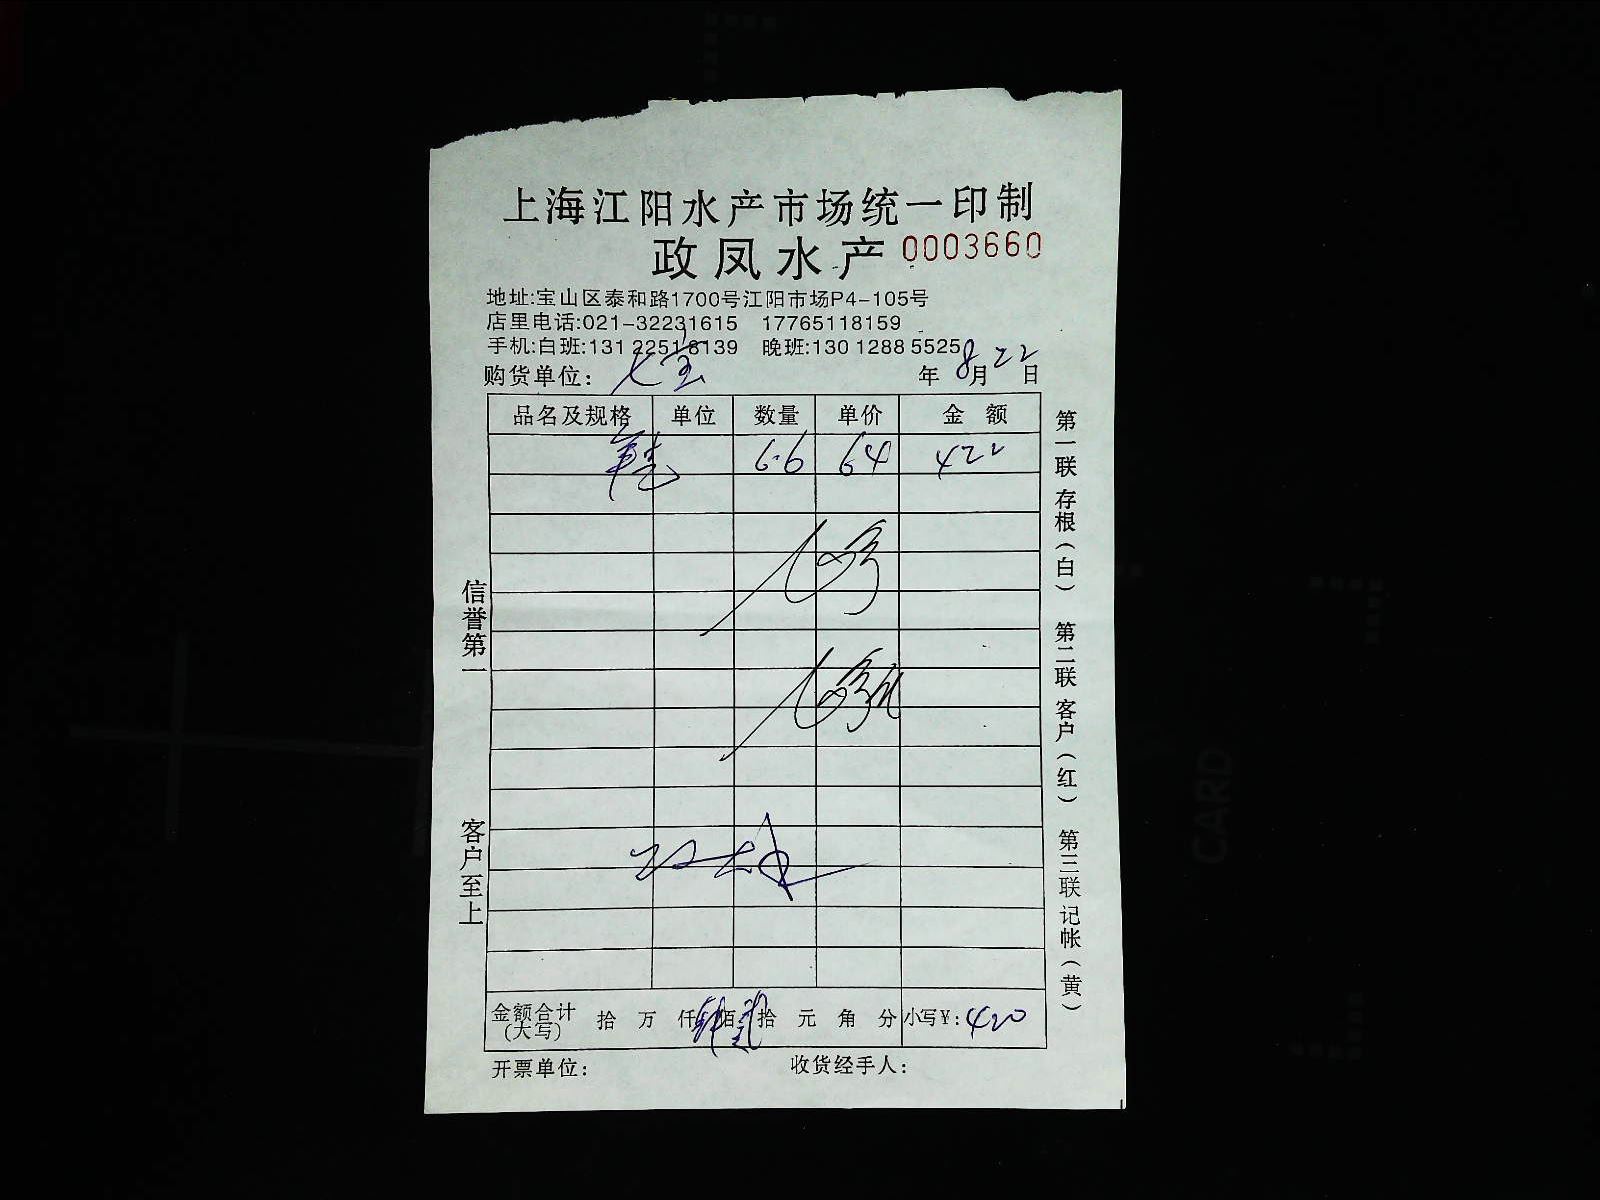 上海江阳水产市场统一印制
政凤水产 0003660
地址:宝山区泰和路1700号江阳市场P4-105号
店里电话:021-32231615 17765118159
手机:白班:131 2251 8139 晚班:130 1288 5525
购货单位: 七宝 年 8月22日
品名及规格 单位 数量 单价 金额
6.6 64 422
金额合计(大写) 拾 万 仟 佰 拾 元 角 分 小写¥:420
开票单位: 收货经手人:
信誉第一 客户至上
第一联 存根(白) 第二联 客户(红) 第三联 记帐(黄)
CARD